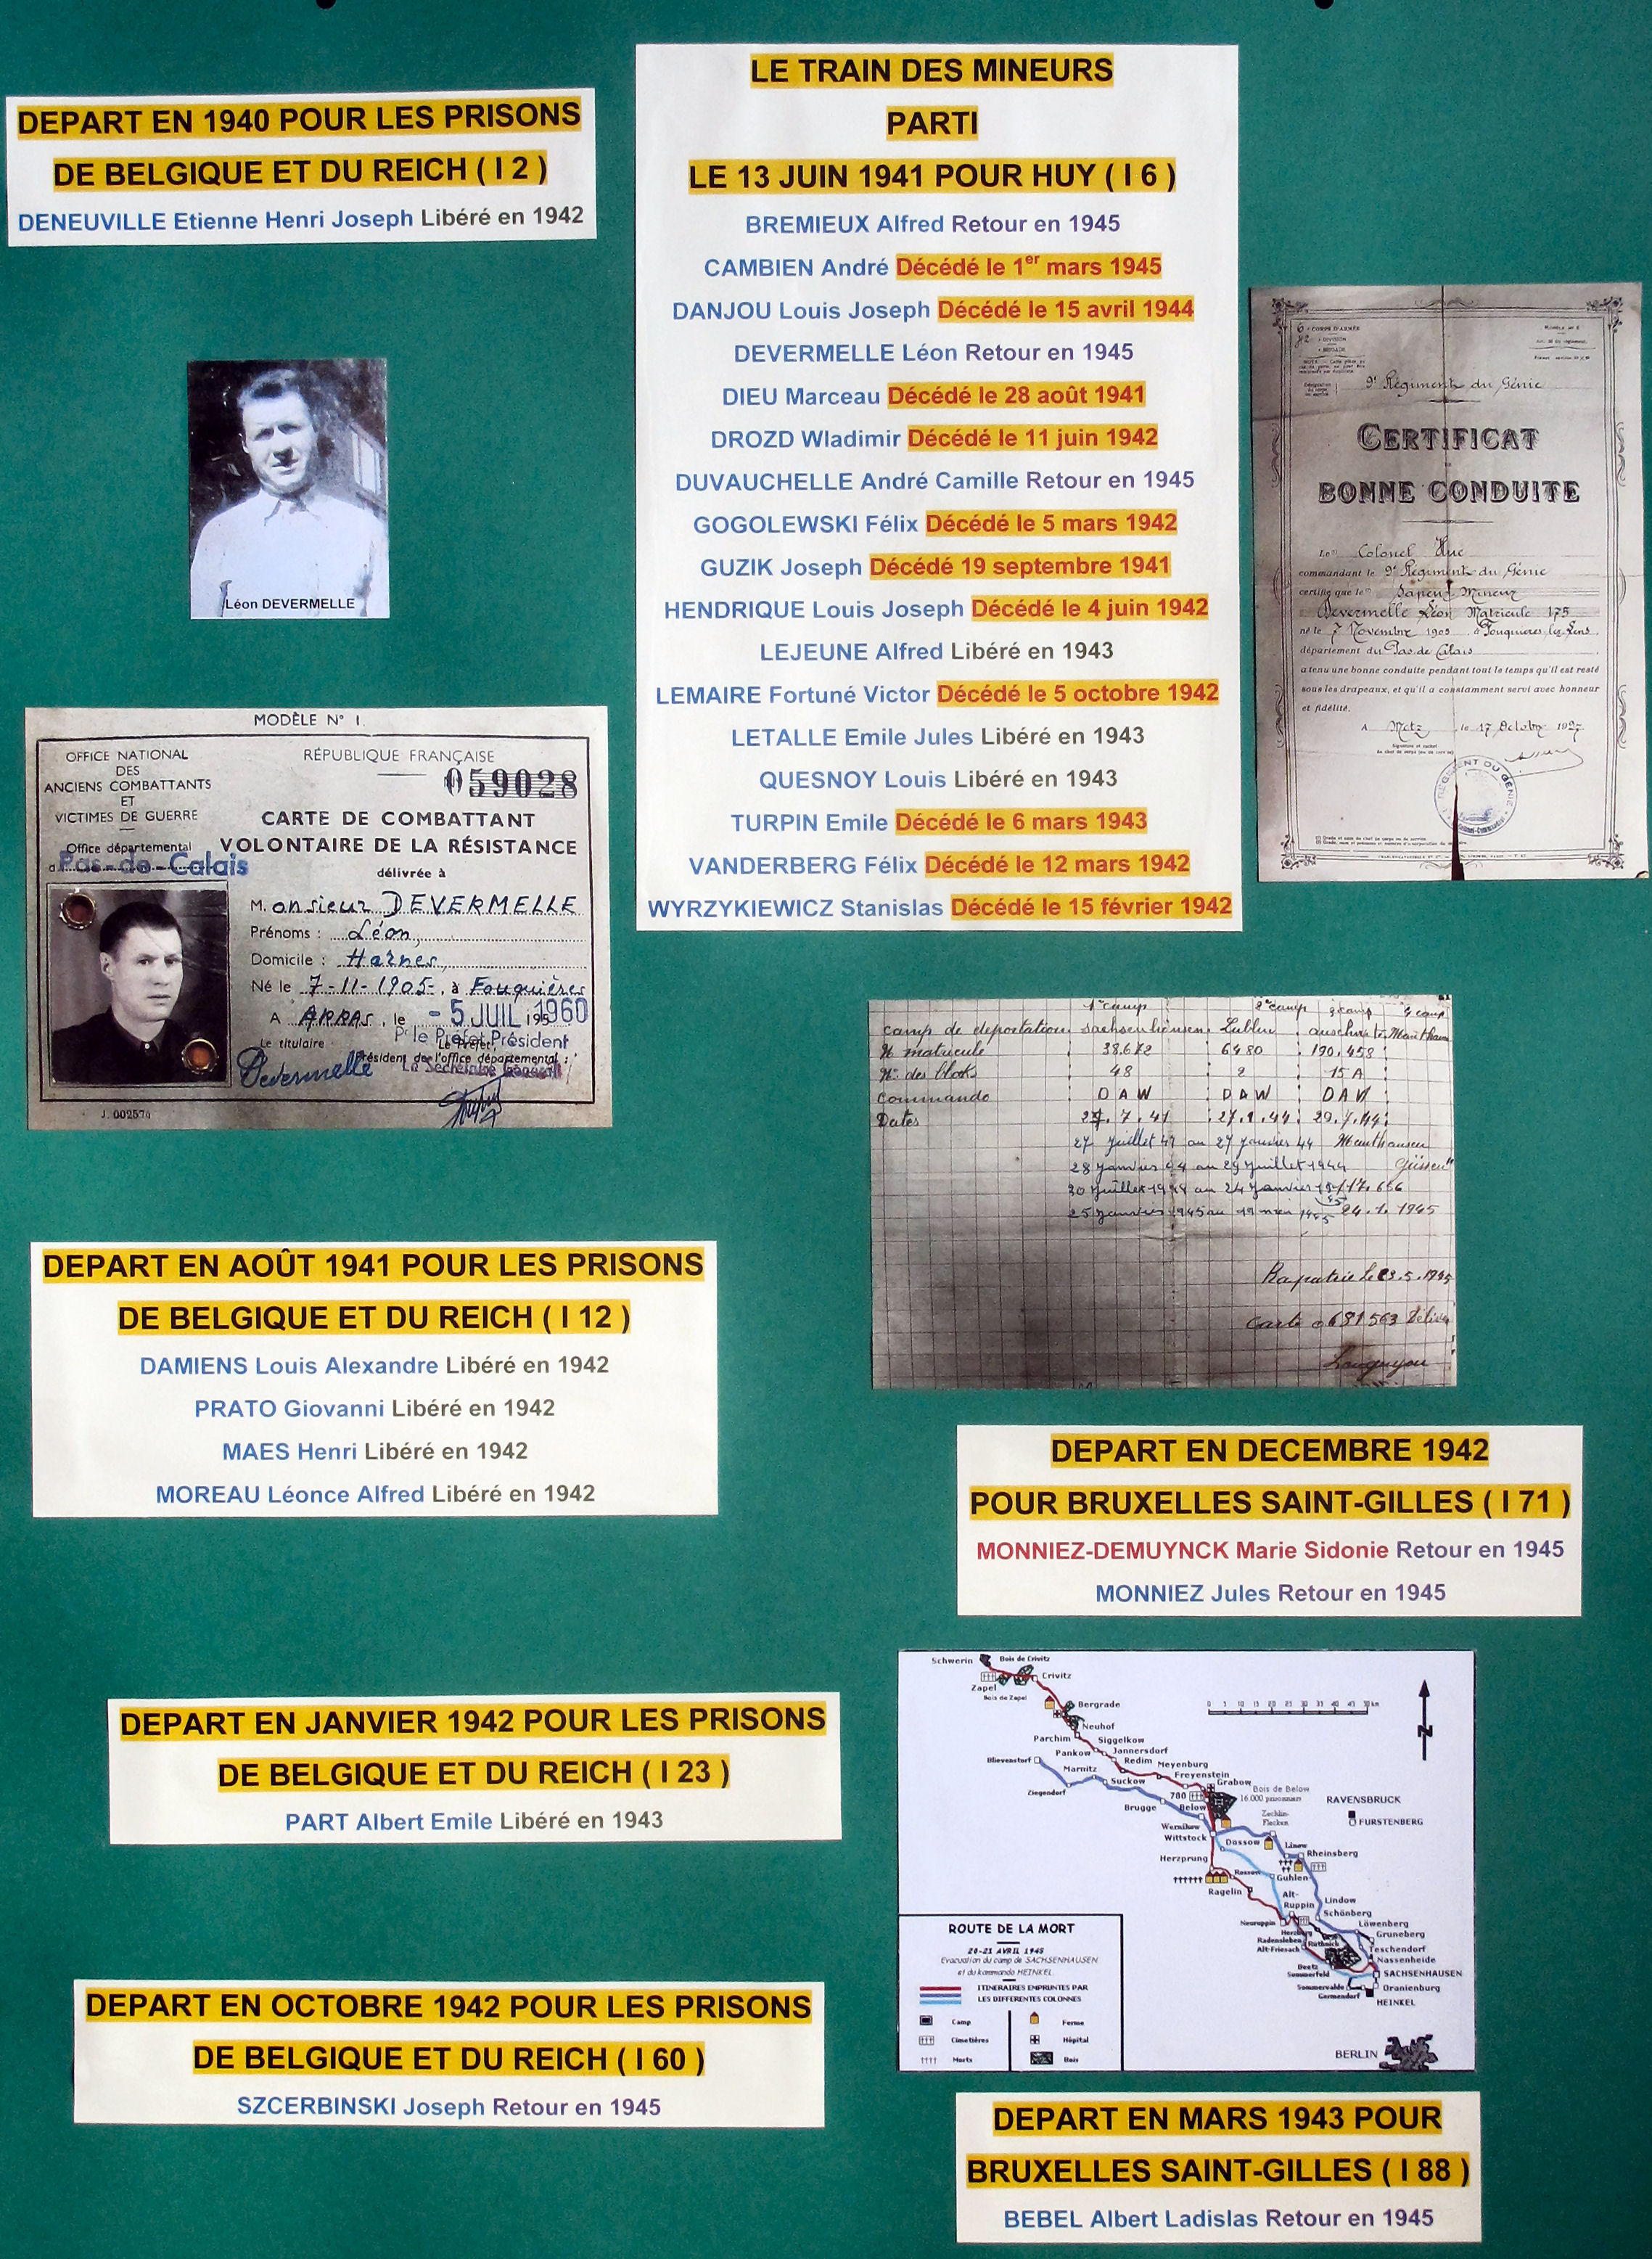 DEPART EN 1940 POUR LES PRISONS
DE BELGIQUE ET DU REICH ( I 2 )
DENEUVILLE Etienne Henri Joseph Libéré en 1942
LE TRAIN DES MINEURS
PARTI
LE 13 JUIN 1941 POUR HUY ( I 6 )
BREMIEUX Alfred Retour en 1945
CAMBIEN André Décédé le 1er mars 1945
DANJOU Louis Joseph Décédé le 15 avril 1944
DEVERMELLE Léon Retour en 1945
DIEU Marceau Décédé le 28 août 1941
DROZD Wladimir Décédé le 11 juin 1942
DUVAUCHELLE André Camille Retour en 1945
GOGOLEWSKI Félix Décédé le 5 mars 1942
GUZIK Joseph Décédé 19 septembre 1941
HENDRIQUE Louis Joseph Décédé le 4 juin 1942
LEJEUNE Alfred Libéré en 1943
LEMAIRE Fortuné Victor Décédé le 5 octobre 1942
LETALLE Emile Jules Libéré en 1943
QUESNOY Louis Libéré en 1943
TURPIN Emile Décédé le 6 mars 1943
VANDERBERG Félix Décédé le 12 mars 1942
WYRZYKIEWICZ Stanislas Décédé le 15 février 1942
9e Régiment du Génie
CERTIFICAT
BONNE CONDUITE
Le Colonel Huc
commandant le 9e Régiment du Génie
certifie que le Sapeur Mineur
Devermelle Léon Matricule 175
né le 7 Novembre 1905 à Fouquières lez Lens
département du Pas de Calais
a tenu une bonne conduite pendant tout le temps qu'il est resté
sous les drapeaux, et qu'il a constamment servi avec honneur
et fidélité.
A Metz le 17 Octobre 1927
Léon DEVERMELLE
MODÈLE N° 1
OFFICE NATIONAL
DES
ANCIENS COMBATTANTS
ET
VICTIMES DE GUERRE
Office départemental
d Pas-de-Calais
RÉPUBLIQUE FRANÇAISE
059028
CARTE DE COMBATTANT
VOLONTAIRE DE LA RÉSISTANCE
délivrée à
Monsieur DEVERMELLE
Prénoms : Léon
Domicile : Harnes
Né le 7-11-1905, à Fouquières
A ARRAS, le - 5 JUIL 1960
Le titulaire
P' le Préfet, Président
Président de l'office départemental :
Devermelle
J. 002570
1er camp 2e camp 3 camp 4 camp
camp de deportation Sachsenhausen Lublin
N matricule 38.672 6480 190.458
N° des blocks 48 2 15 A
commando D A W D A W D A W
Dates 27.7.41 27.1.44 29.7.44
27 Juillet 41 au 27 Janvier 44 Mauthausen
28 Janvier 44 au 29 Juillet 1944
30 Juillet 1944 au 24 Janvier
25 Janvier 1945 au 24.1.1945
Rapatrié le 23.5.1945
Carte 681563
DEPART EN AOÛT 1941 POUR LES PRISONS
DE BELGIQUE ET DU REICH ( I 12 )
DAMIENS Louis Alexandre Libéré en 1942
PRATO Giovanni Libéré en 1942
MAES Henri Libéré en 1942
MOREAU Léonce Alfred Libéré en 1942
DEPART EN DECEMBRE 1942
POUR BRUXELLES SAINT-GILLES ( I 71 )
MONNIEZ-DEMUYNCK Marie Sidonie Retour en 1945
MONNIEZ Jules Retour en 1945
DEPART EN JANVIER 1942 POUR LES PRISONS
DE BELGIQUE ET DU REICH ( I 23 )
PART Albert Emile Libéré en 1943
Schwerin
Bois de Crivitz
Crivitz
Zapel
Bois de Zapel
Bergrade
Neuhof
Parchim
Siggelkow
Pankow
Jannersdorf
Redim
Meyenburg
Blievenstorf
Marnitz
Suckow
Freyenstein
Grabow
Ziegendorf
Bois de Below
16.000 prisonniers
780
Brugge
Below
RAVENSBRUCK
FURSTENBERG
Zechlin-
Flecken
Wernikow
Wittstock
Dossow
Linow
Rheinsberg
Herzprung
Rossow
Guhlen
Ragelin
Alt-
Ruppin
Lindow
Schönberg
Neuruppin
Herzberg
Löwenberg
Gruneberg
Radensleben
Rüthnick
Alt-Friesack
Teschendorf
Nassenheide
Beetz
Sommerfeld
SACHSENHAUSEN
Sommerswalde
Oranienburg
Germendorf
HEINKEL
BERLIN
0 5 10 15 20 25 30 35 40 45 50 km
N
ROUTE DE LA MORT
20-21 AVRIL 1945
Evacuation du camp de SACHSENHAUSEN
et du kommando HEINKEL
ITINERAIRES EMPRUNTES PAR
LES DIFFERENTES COLONNES
Camp
Ferme
Cimetières
Hôpital
Morts
Bois
DEPART EN OCTOBRE 1942 POUR LES PRISONS
DE BELGIQUE ET DU REICH ( I 60 )
SZCERBINSKI Joseph Retour en 1945
DEPART EN MARS 1943 POUR
BRUXELLES SAINT-GILLES ( I 88 )
BEBEL Albert Ladislas Retour en 1945